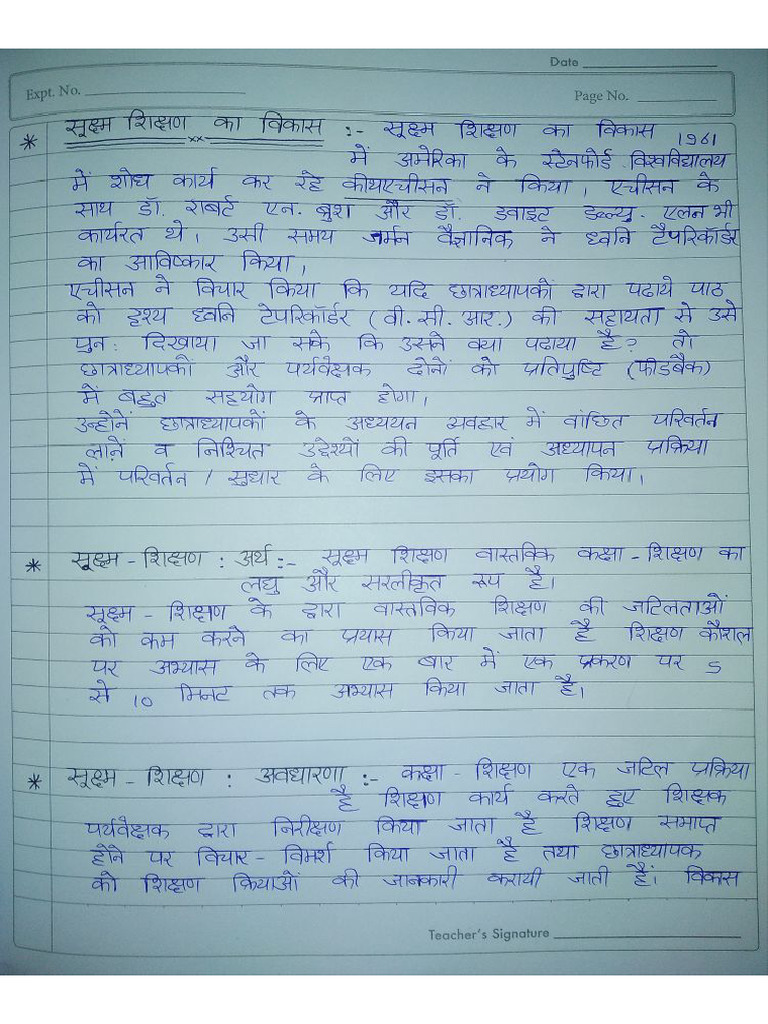 Date
Expt. No.
Page No.
* सूक्ष्म शिक्षण का विकास :- सूक्ष्म शिक्षण का विकास 1961
में अमेरिका के स्टेनफोर्ड विश्वविद्यालय
में शोध कार्य कर रहे कीथएचीसन ने किया। एचीसन के
साथ डॉ. राबर्ट एन. बुश और डॉ. ड्वाइट डब्ल्यु. एलन भी
कार्यरत थे। उसी समय जर्मन वैज्ञानिक ने ध्वनि टैपरिकॉर्डर
का आविष्कार किया।
एचीसन ने विचार किया कि यदि छात्राध्यापकों द्वारा पढाये पाठ
को दृश्य ध्वनि टेपरिकॉर्डर (वी.सी.आर.) की सहायता से उसे
पुन: दिखाया जा सके कि उसने क्या पढाया है? तो
छात्राध्यापकों और पर्यवेक्षक दोनों को प्रतिपुष्टि (फीडबैक)
में बहुत सहयोग प्राप्त होगा।
उन्होनें छात्राध्यापकों के अध्ययन व्यवहार में वांछित परिवर्तन
लानें व निश्चित उद्देश्यों की पूर्ति एवं अध्यापन प्रक्रिया
में परिवर्तन / सुधार के लिए इसका प्रयोग किया।
* सूक्ष्म - शिक्षण : अर्थ :- सूक्ष्म शिक्षण वास्तविक कक्षा - शिक्षण का
लघु और सरलीकृत रूप है।
सूक्ष्म - शिक्षण के द्वारा वास्तविक शिक्षण की जटिलताओं
को कम करने का प्रयास किया जाता है शिक्षण कौशल
पर अभ्यास के लिए एक बार में एक प्रकरण पर 5
से 10 मिनट तक अभ्यास किया जाता है।
* सूक्ष्म - शिक्षण : अवधारणा :- कक्षा - शिक्षण एक जटिल प्रक्रिया
है शिक्षण कार्य करते हुए शिक्षक
पर्यवेक्षक द्वारा निरीक्षण किया जाता है शिक्षण समाप्त
होने पर विचार - विमर्श किया जाता है तथा छात्राध्यापक
को शिक्षण क्रियाओं की जानकारी करायी जाती है। विकास
Teacher's Signature